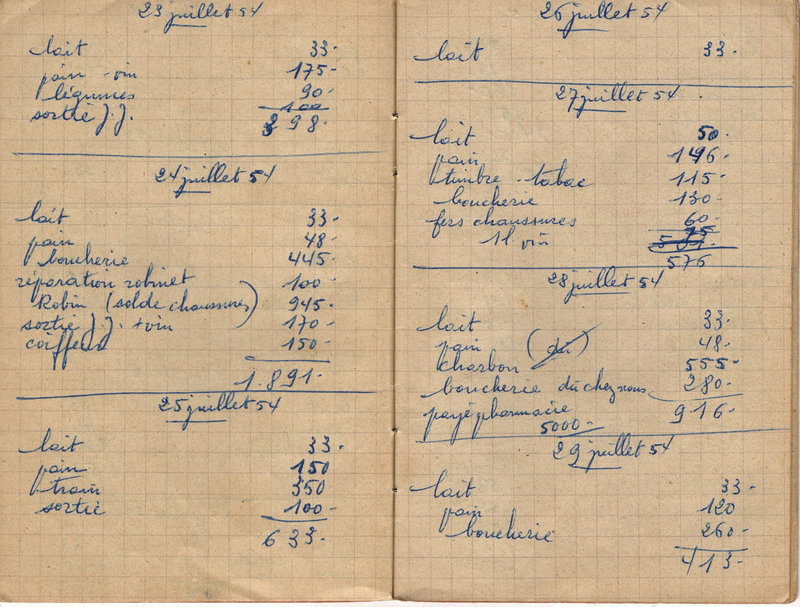 23 juillet 54
lait 33-
pain - vin 175-
légumes 90-
sortie J.J. 100
398-
24 juillet 54
lait 33-
pain 48-
boucherie 445-
réparation robinet 100-
Robin (solde chaussures) 945-
sortie J.J. + vin 170-
coiffeur 150-
1.891-
25 juillet 54
lait 33-
pain 150
train 350
sortie 100-
633-
26 juillet 54
lait 33-
27 juillet 54
lait 50-
pain 146-
timbre - tabac 115-
boucherie 130-
fers chaussures 60-
1l. vin 75
501-
576
28 juillet 54
lait 33-
pain (du) 48-
charbon 555-
boucherie dû chez nous 280-
payé pharmacie 916-
5000-
29 juillet 54
lait 33-
pain 120
boucherie 260-
413-